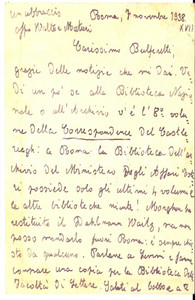 un abbraccio Roma, 7 novembre 1938
aff. Walter Maturi XVII
Carissimo Belfretti,
grazie delle notizie che mi dai. Ve-
di un po' se alla Biblioteca Nazio-
nale o all'Archivio v'è l'8° volu-
me della Correspondence del Castle-
reagh: a Roma la Biblioteca dell'Ar-
chivio del Ministero Degli Affari Esteri
possiede solo gli ultimi 4 volumi e
le altre biblioteche niente! Morghen ha
restituito il Dahlmann Waitz, ma non
posso mandarlo fuori Roma: è sempre chie-
sto da qualcuno. Parlane a e fanne
comprare una copia per la Biblioteca della
Facoltà di Lettere. Saluti al e a